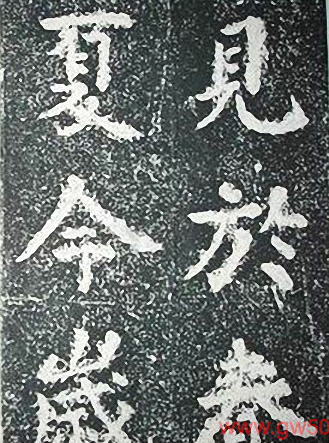 見於
夏今歲
www.gw50